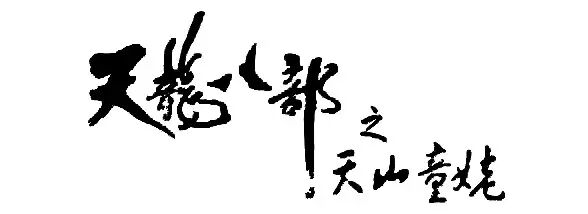 天龍八部
之
天山童姥